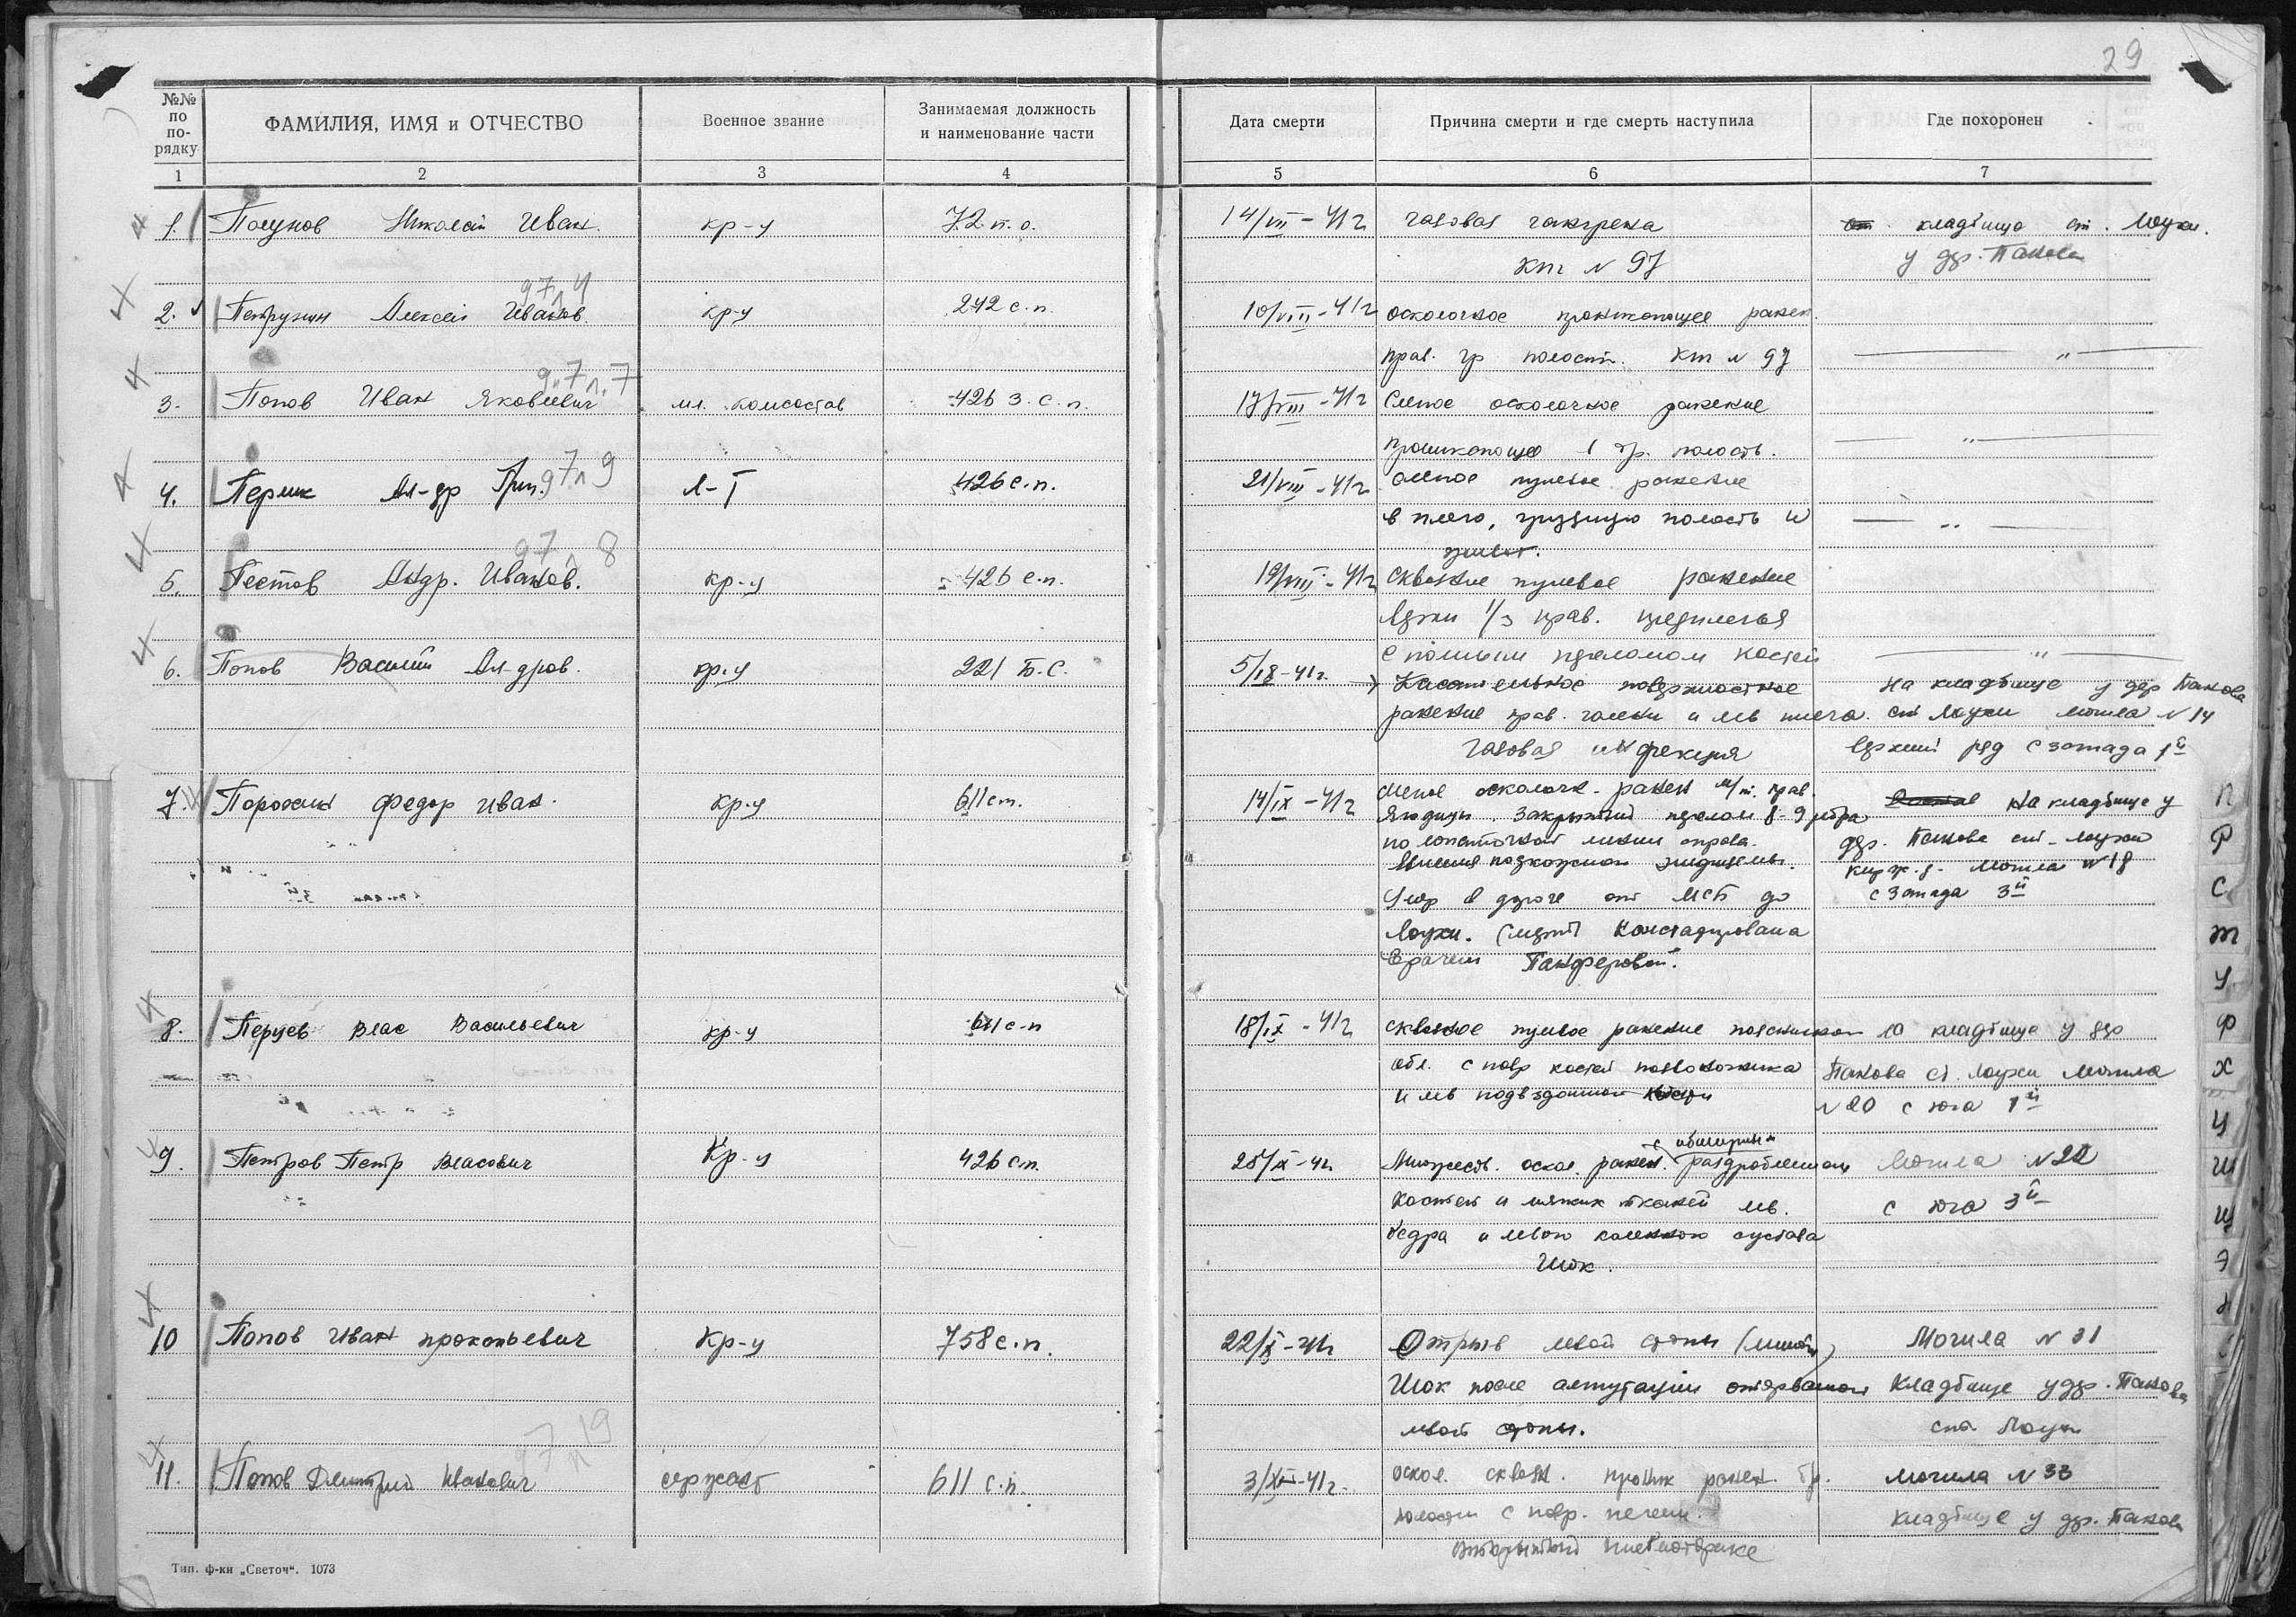 29
№№ по по-рядку
ФАМИЛИЯ, ИМЯ и ОТЧЕСТВО
Военное звание
Занимаемая должность и наименование части
Дата смерти
Причина смерти и где смерть наступила
Где похоронен
1 2 3 4 5 6 7
1. Николай Иван. кр-ц 72 п.о. 14/VII-41г газовая гангрена кладбище ст. Лоухи.
у дер. Панова
97 л 4
2. Петрунин Алексей Иванов. кр-ц 242 с.п. 10/VIII-41г осколочное проникающее ранен
прав. гр полости. — „ —
97 л. 7
3. Попов Иван Яковлевич мл. комсостав 426 з.с.п. 17/VIII-41г Слепое осколочное ранение
проникающее гр. полость. — „ —
97 л 9
4. Ал-др Григ. л-т 426 с.п. 21/VIII-41г слепое пулевое ранение
в плечо, грудную полость и — „ —
живот.
97 л 8
5. Пестов Андр. Иванов. кр-ц 426 с.п. 19/VIII-41г сквозное пулевое ранение
1/3 прав. предплечья
с полным переломом костей — „ —
6. Попов Василий Ал-дров. кр-ц 221 Б.С. 5/IX-41г.
Касательное поверхностное на кладбище у дер Панова
ранение прав. голени и лев плеча. ст Лоухи могила №14
газовая инфекция верхний ряд с запада 1й
7. Федор Иван. кр-ц 611 сп. 14/IX-41г слепое осколочн. ранен м/т. прав. На кладбище у
ягодицы. Закрытый перелом 8-9 ребра
по лопаточной линии справа. дер. Панова ст. Лоухи
подкожная эмфизема. могила №18
Умер в дороге от МСБ до с запада 3й
Лоухи. Констатирована
Врачем Панферовой.
8. Влас Васильевич кр-ц 611 с.п 18/IX-41г сквозное пулевое ранение кладбище у дер
обл. с повр костей позвоночника Панова ст. Лоухи могила
и лев подвздошной кости №20 с юга 1й
9. Петров Петр Власович Кр-ц 426 сп. 25/IX-41 Множеств. оскол. ранен. с обширным раздроблением Могила №22
костей и мягких тканей лев. с юга 3й
бедра и левого коленного сустава
Шок.
10 Попов Иван прокопьевич Кр-ц 758 с.п. 22/X-41г Отрыв левой стопы Могила №31
Шок после ампутации оторванной Кладбище у дер. Панова
левой стопы. ст. Лоухи
97 л 19
11. Попов Дмитрий Иванович сержант 611 с.п. 3/XII-41г. оскол. сквозн. проник ранен. гр. могила №33
полости с повр. печени. кладбище у дер. Панова
открытый пневмоторакс
П
Р
С
Т
У
Ф
Х
Ц
Ш
Щ
Э
Тип. ф-ки „Светоч". 1073